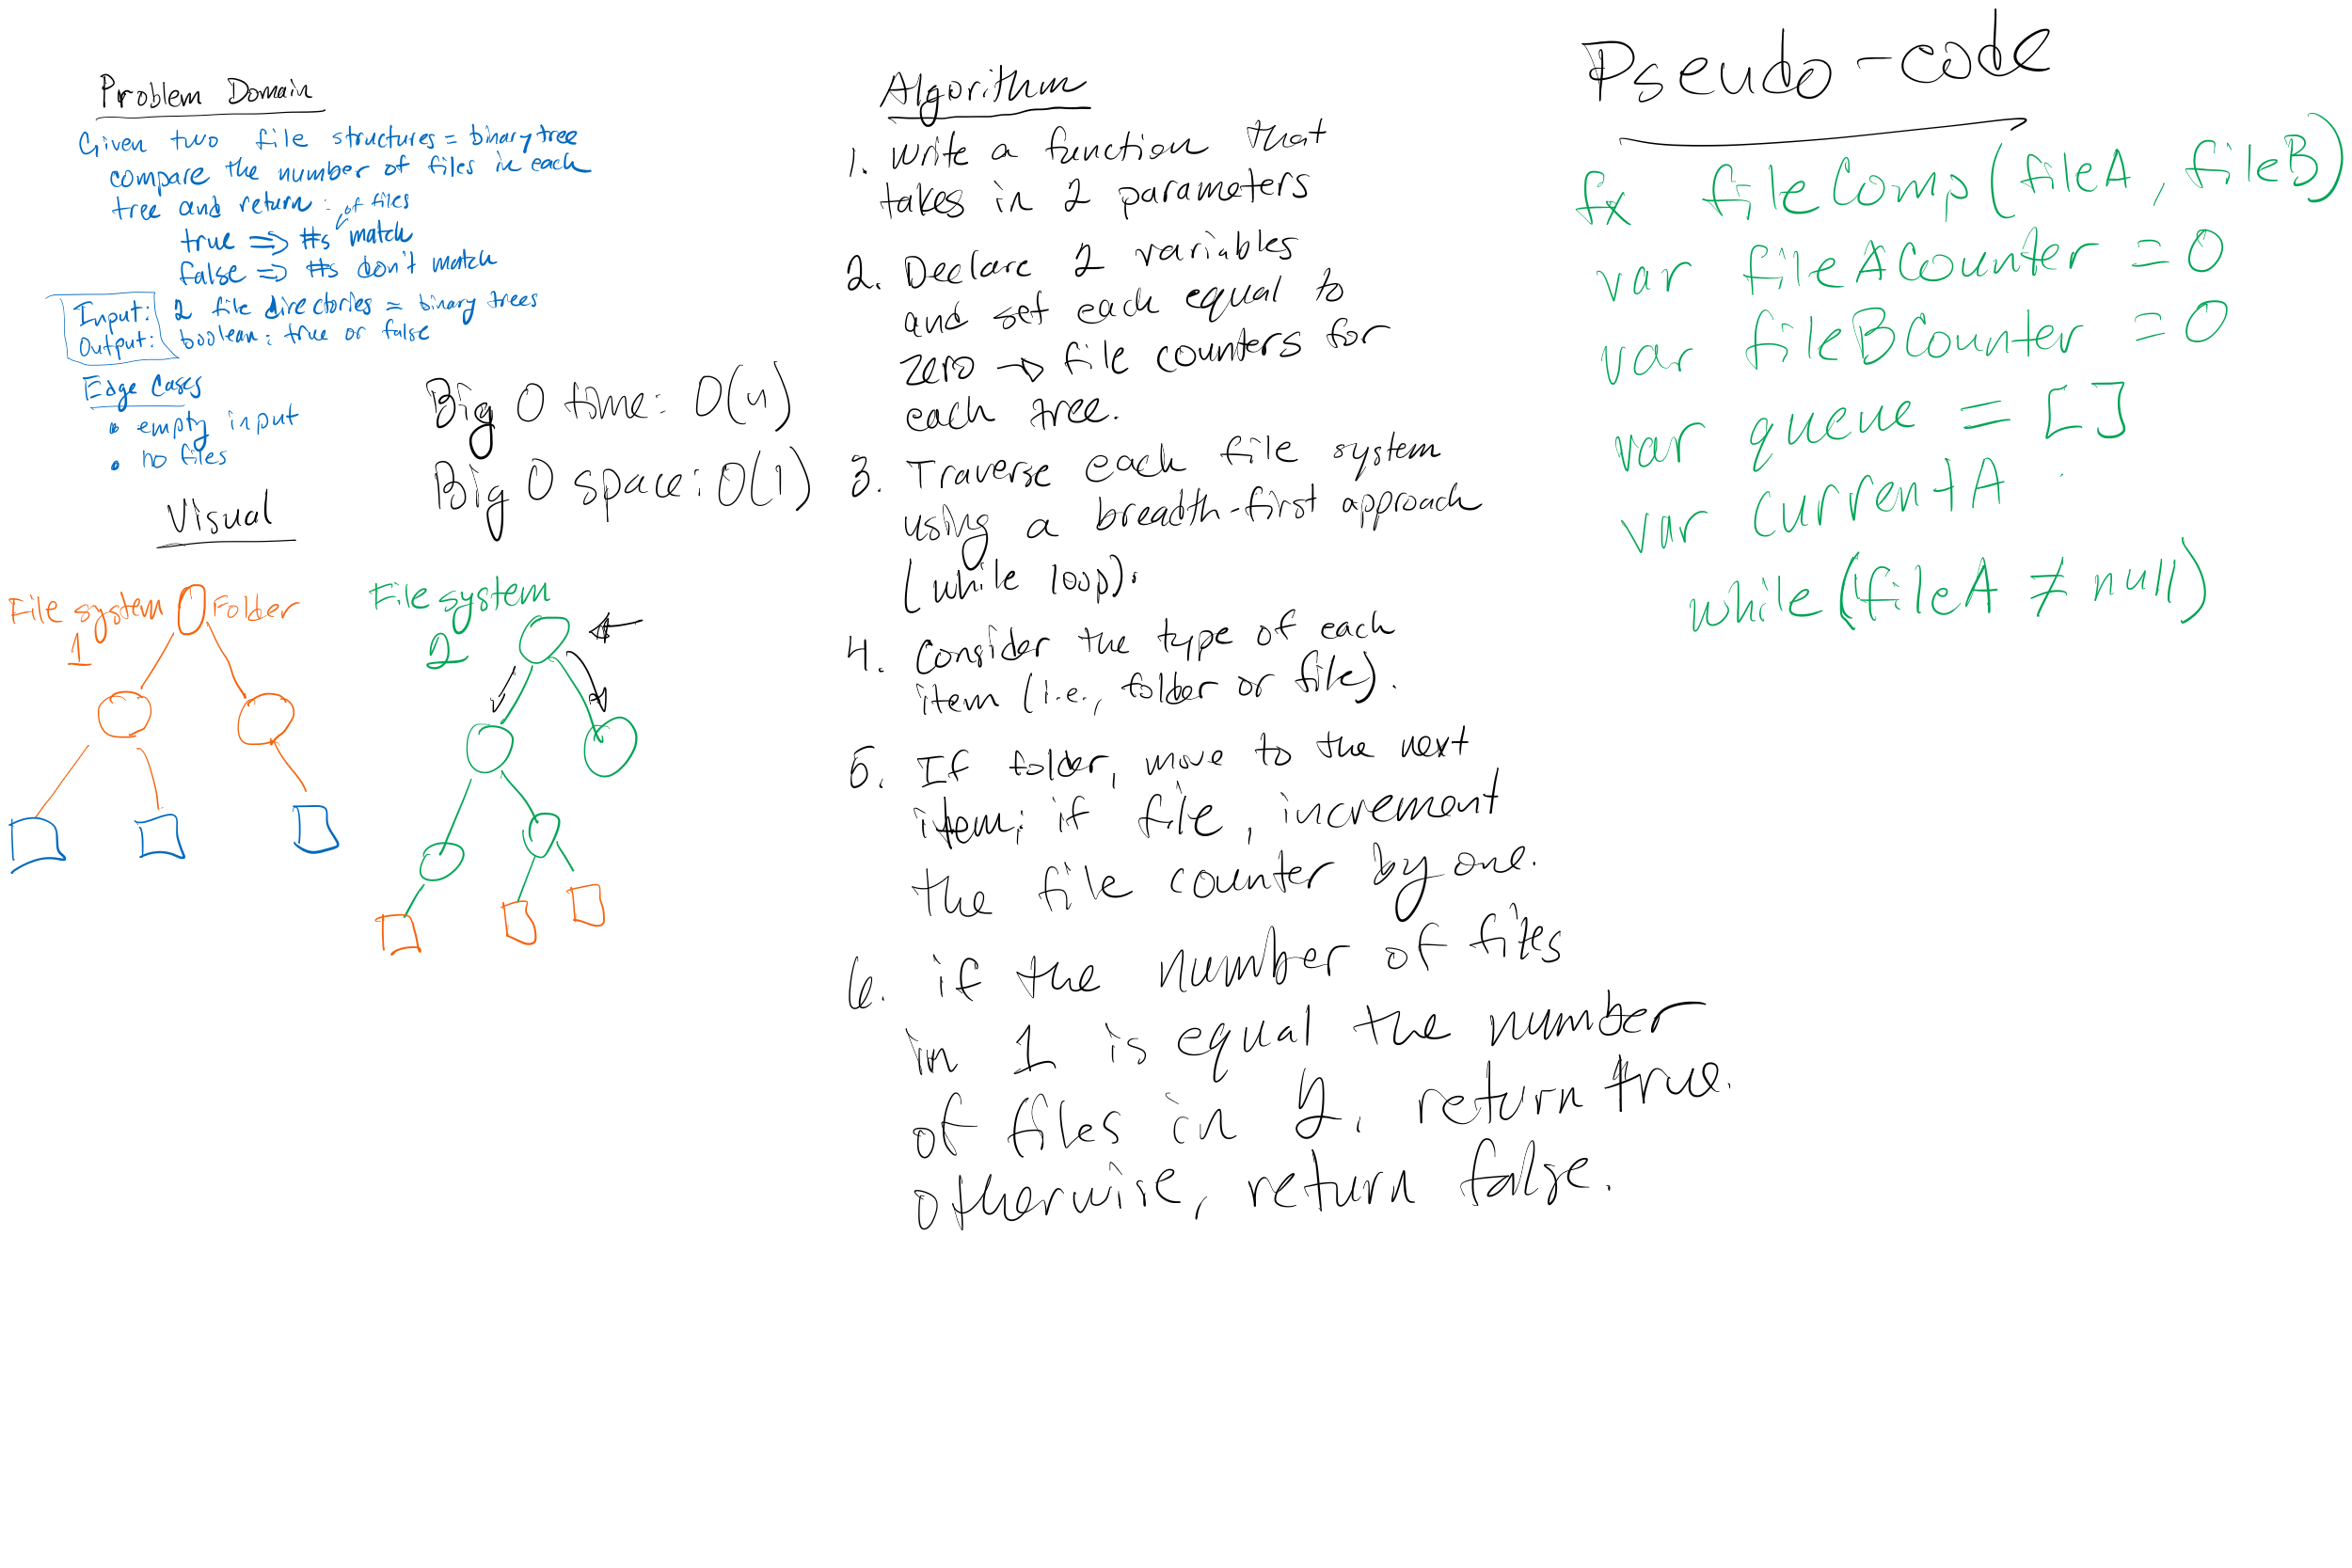 Problem Domain
Given two file structures = binary tree
compare the number of files in each
tree and return: of files
true => #s match
false => #s don't match
Input: 2 file directories = binary trees
Output: boolean: true or false
Edge Cases
• empty input
• no files
Big O time: O(n)
Big O space: O(1)
Visual
File system Folder
1
File system
2
Algorithm
1. Write a function that
takes in 2 parameters
2. Declare 2 variables
and set each equal to
zero → file counters for
each tree.
3. Traverse each file system
using a breadth-first approach
(while loop).
4. Consider the type of each
item (i.e., folder or file).
5. If folder, move to the next
item; if file, increment
the file counter by one.
6. if the number of files
in 1 is equal the number
of files in 2, return true.
otherwise, return false.
Pseudo-code
fx fileComp(fileA, fileB)
var fileACounter = 0
var fileBCounter = 0
var queue = []
var currentA
while(fileA ≠ null)